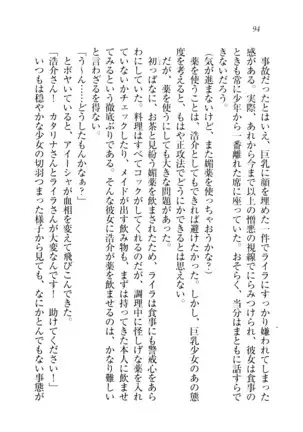 94
事故だったとはいえ、巨乳に顔を埋めた一件でライラにすっかり嫌われてしまった
感がある。実際、あれから今まで以上の憎悪の視線でにらみつけられ、彼女は食事の
ときも常に少年から一番離れた席に座っていた。おそらく、当分はまともに話すらで
きないだろう。
（気が進まないけど、また媚薬を使っちゃおうかな？）
薬を使うことは、浩介としてもできれば避けたかった。しかし、巨乳少女のあの態
度を考えると、もはや正攻法でどうにかできるとは思えない。
だが、薬を使うにしても大きな問題があった。
初っぱなに、お茶と見紛う媚薬を飲ませてしまったため、ライラは食事にも警戒心をあら
わにしていた。料理はすべてコックがしてくれるのだが、調理中に怪しげな薬を入れ
ていないかチェックしたり、メイドが出す飲み物も、まずは持ってきた本人に飲ませ
るという徹底ぶりである。そんな彼女に浩介が薬を飲ませるのは、かなり難しい
と言わざるを得ない。
「う～ん……どうしたもんかなぁ？」
とボヤいていると、アイーシャが血相を変えて飛びこんできた。
「浩介さん！　カタリナさんとライラさんが大変なんです！　助けてください！」
いつもは穏やかな少女の切羽つまった様子から見ても、なにかとんでもない事態が